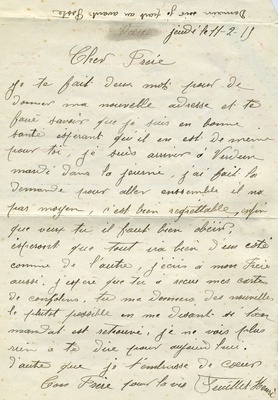 Demain soir je part en avant Poste
jeudi le 11-2-15
Cher Frère
Je te fait deux mots pour de
donner ma nouvelle adresse et te
faire savoir que je suis en bonne
santé esperant qu'il en est de meme
pour toi je suis arriver à Verdun
mardi dans la journé, j'ai fait la
demande pour aller enssemble il n'a
pas moyen, c'est bien regrettable, enfin
que veux tu il faut bien obéir,
esperont que tout va bien d'un coté
comme de l'autre, j'écris a mon Frère
aussi, j'espere que tu a recus mes carte
de tu me donnera des nouvelle
le plutot possible en me disant si ton
mandat est retrouvé, je ne vois plus
rien à te dire pour aujourd'hui
d'autre que je t'embrasse de coeur
Ton Frère pour la vie Feuillet Henri